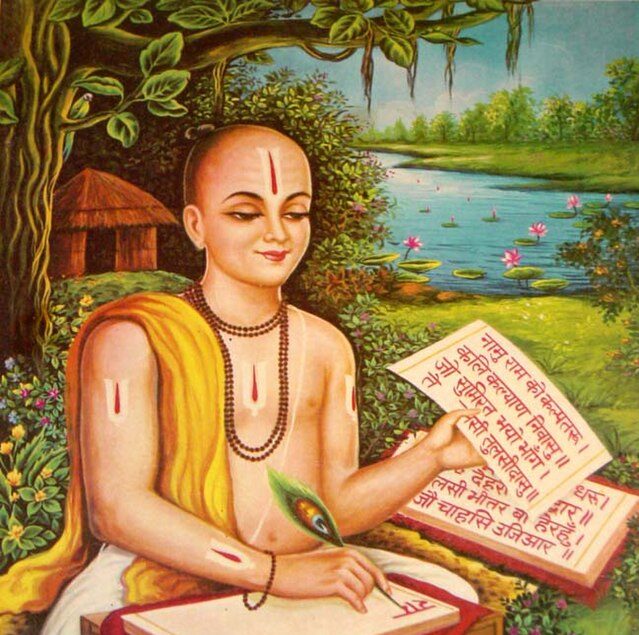 नामु राम को कल्पतरू ।
कलि कल्याण निवासु॥
जो सुमिरत भयो भाँग
ते सी तुलसीदासु॥
धरु।
देहरी
लसी भीतर बा हेरहुँ।
जौ चाहसि उजिआर ॥